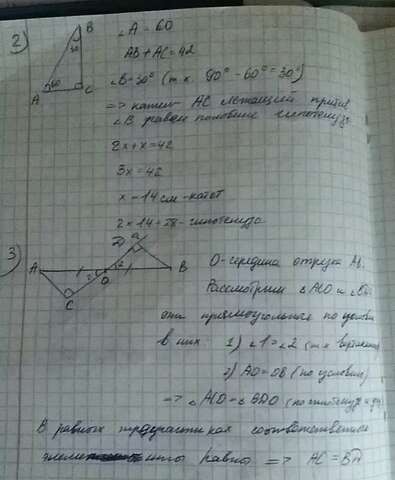 2)
B
30
60
A
C
∠A = 60
AB + AC = 42
∠B = 30° (т.к. 90° - 60° = 30°)
=> катет AC лежащий против
∠B равен половине гипотенузы
2x + x = 42
3x = 42
x = 14 см - катет
2 × 14 = 28 - гипотенуза
3)
A
B
O
C
1
2
O - середина отрезка AB.
Рассмотрим △ ACO и
они прямоугольные по условию
в них 1) ∠1 = ∠2 (т.к вертикальные)
2) AO = OB (по условию)
=> △ ACO = △ (по гипотенузе и
В равных треугольниках соответственно
элементы равны => AC =